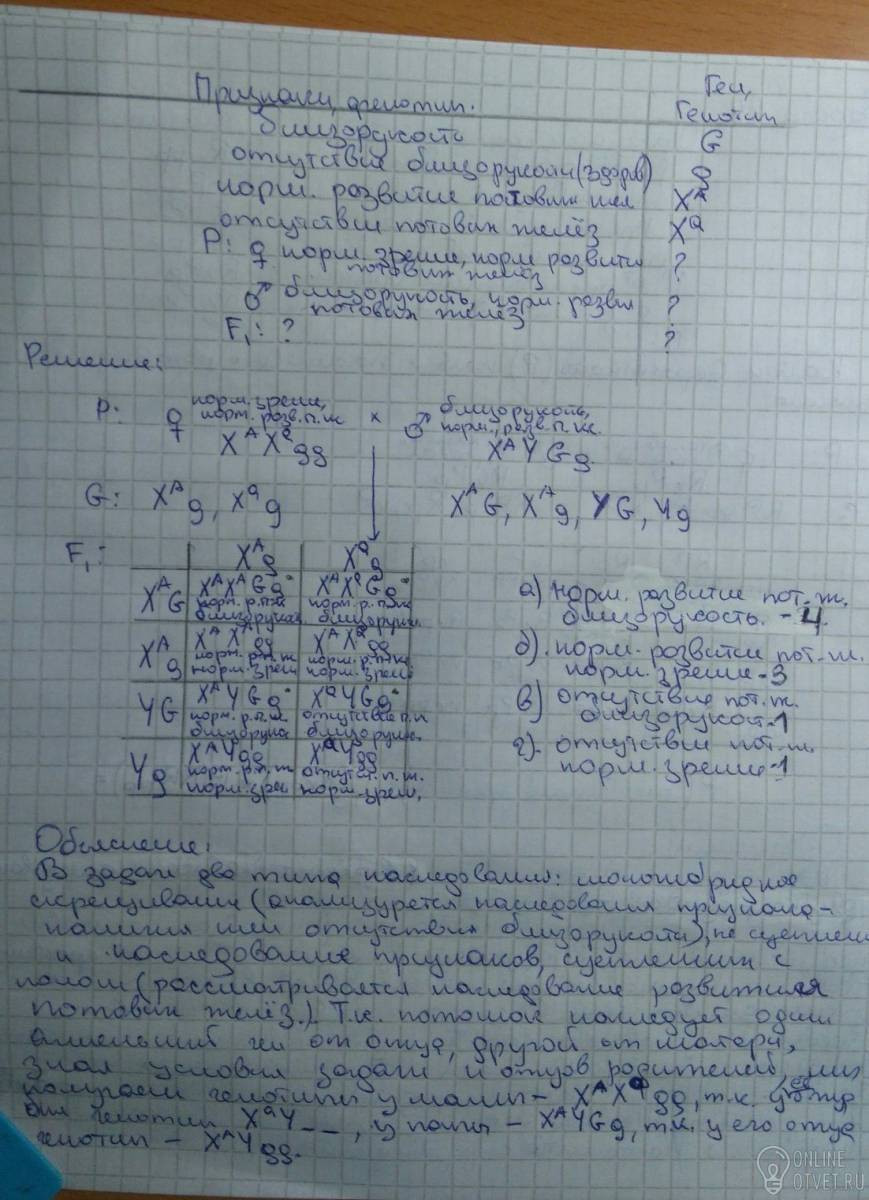 Признаки, фенотип.
Ген,
Генотип
близорукость G
отсутствие близорукости (здоров) g
норм. развитие потовых жел X^A
отсутствии потовых желёз X^a
P: ♀ норм. зрение, норм развития ?
потовых желёз
♂ близорукость, норм. разви ?
потовых желёз
F₁: ? ?
Решение:
P: ♀ норм. зрение, норм. разв. п. ж × ♂ близорукость, норм., разв. п. ж.
X^A X^a gg X^A Y Gg
G: X^A g, X^a g X^A G, X^A g, YG, Yg
F₁: X^A g X^a g
X^A G X^A X^A Gg X^A X^a Gg
норм. р. п. ж норм. р. п. ж
близорукая близорукая.
X^A g X^A X^A gg X^A X^a gg
норм. р. п. ж норм. р. п. ж.
норм. зрен норм. зрен
YG X^A Y Gg X^a Y Gg
норм. р. п. ж. отсутствие п. ж
близорука близорукс.
Yg X^A Y gg X^a Y gg
норм. р. п. ж отсутст. п. ж.
норм. зрен норм. зрен,
а) норм. развитие пот. ж.
близорукость. - 4.
б). норм. развитие пот. ж.
норм. зрение - 3
в) отсутствие пот. ж.
близорукост - 1
г). отсутствии пот. ж.
норм. зрение - 1
Объяснение:
В задаче два типа наследования: моногибридное
скрещивание (анализируется наследования признака-
наличия или отсутствия близорукости), не сцеплен
и наследование признаков, сцепленных с
полом (рассматривается наследование развития
потовых желёз.). Т.к. потомок наследует один
аллельный ген от отца, другой от матери,
зная условия задачи и отцов родителей, мы
получаем генотипы у мамы - X^A X^a gg, т.к. её отца
был генотип X^a Y _ _, у папы - X^A Y Gg, т.к. у его отца
генотип - X^A Y gg.
ONLINE
OTVET.RU